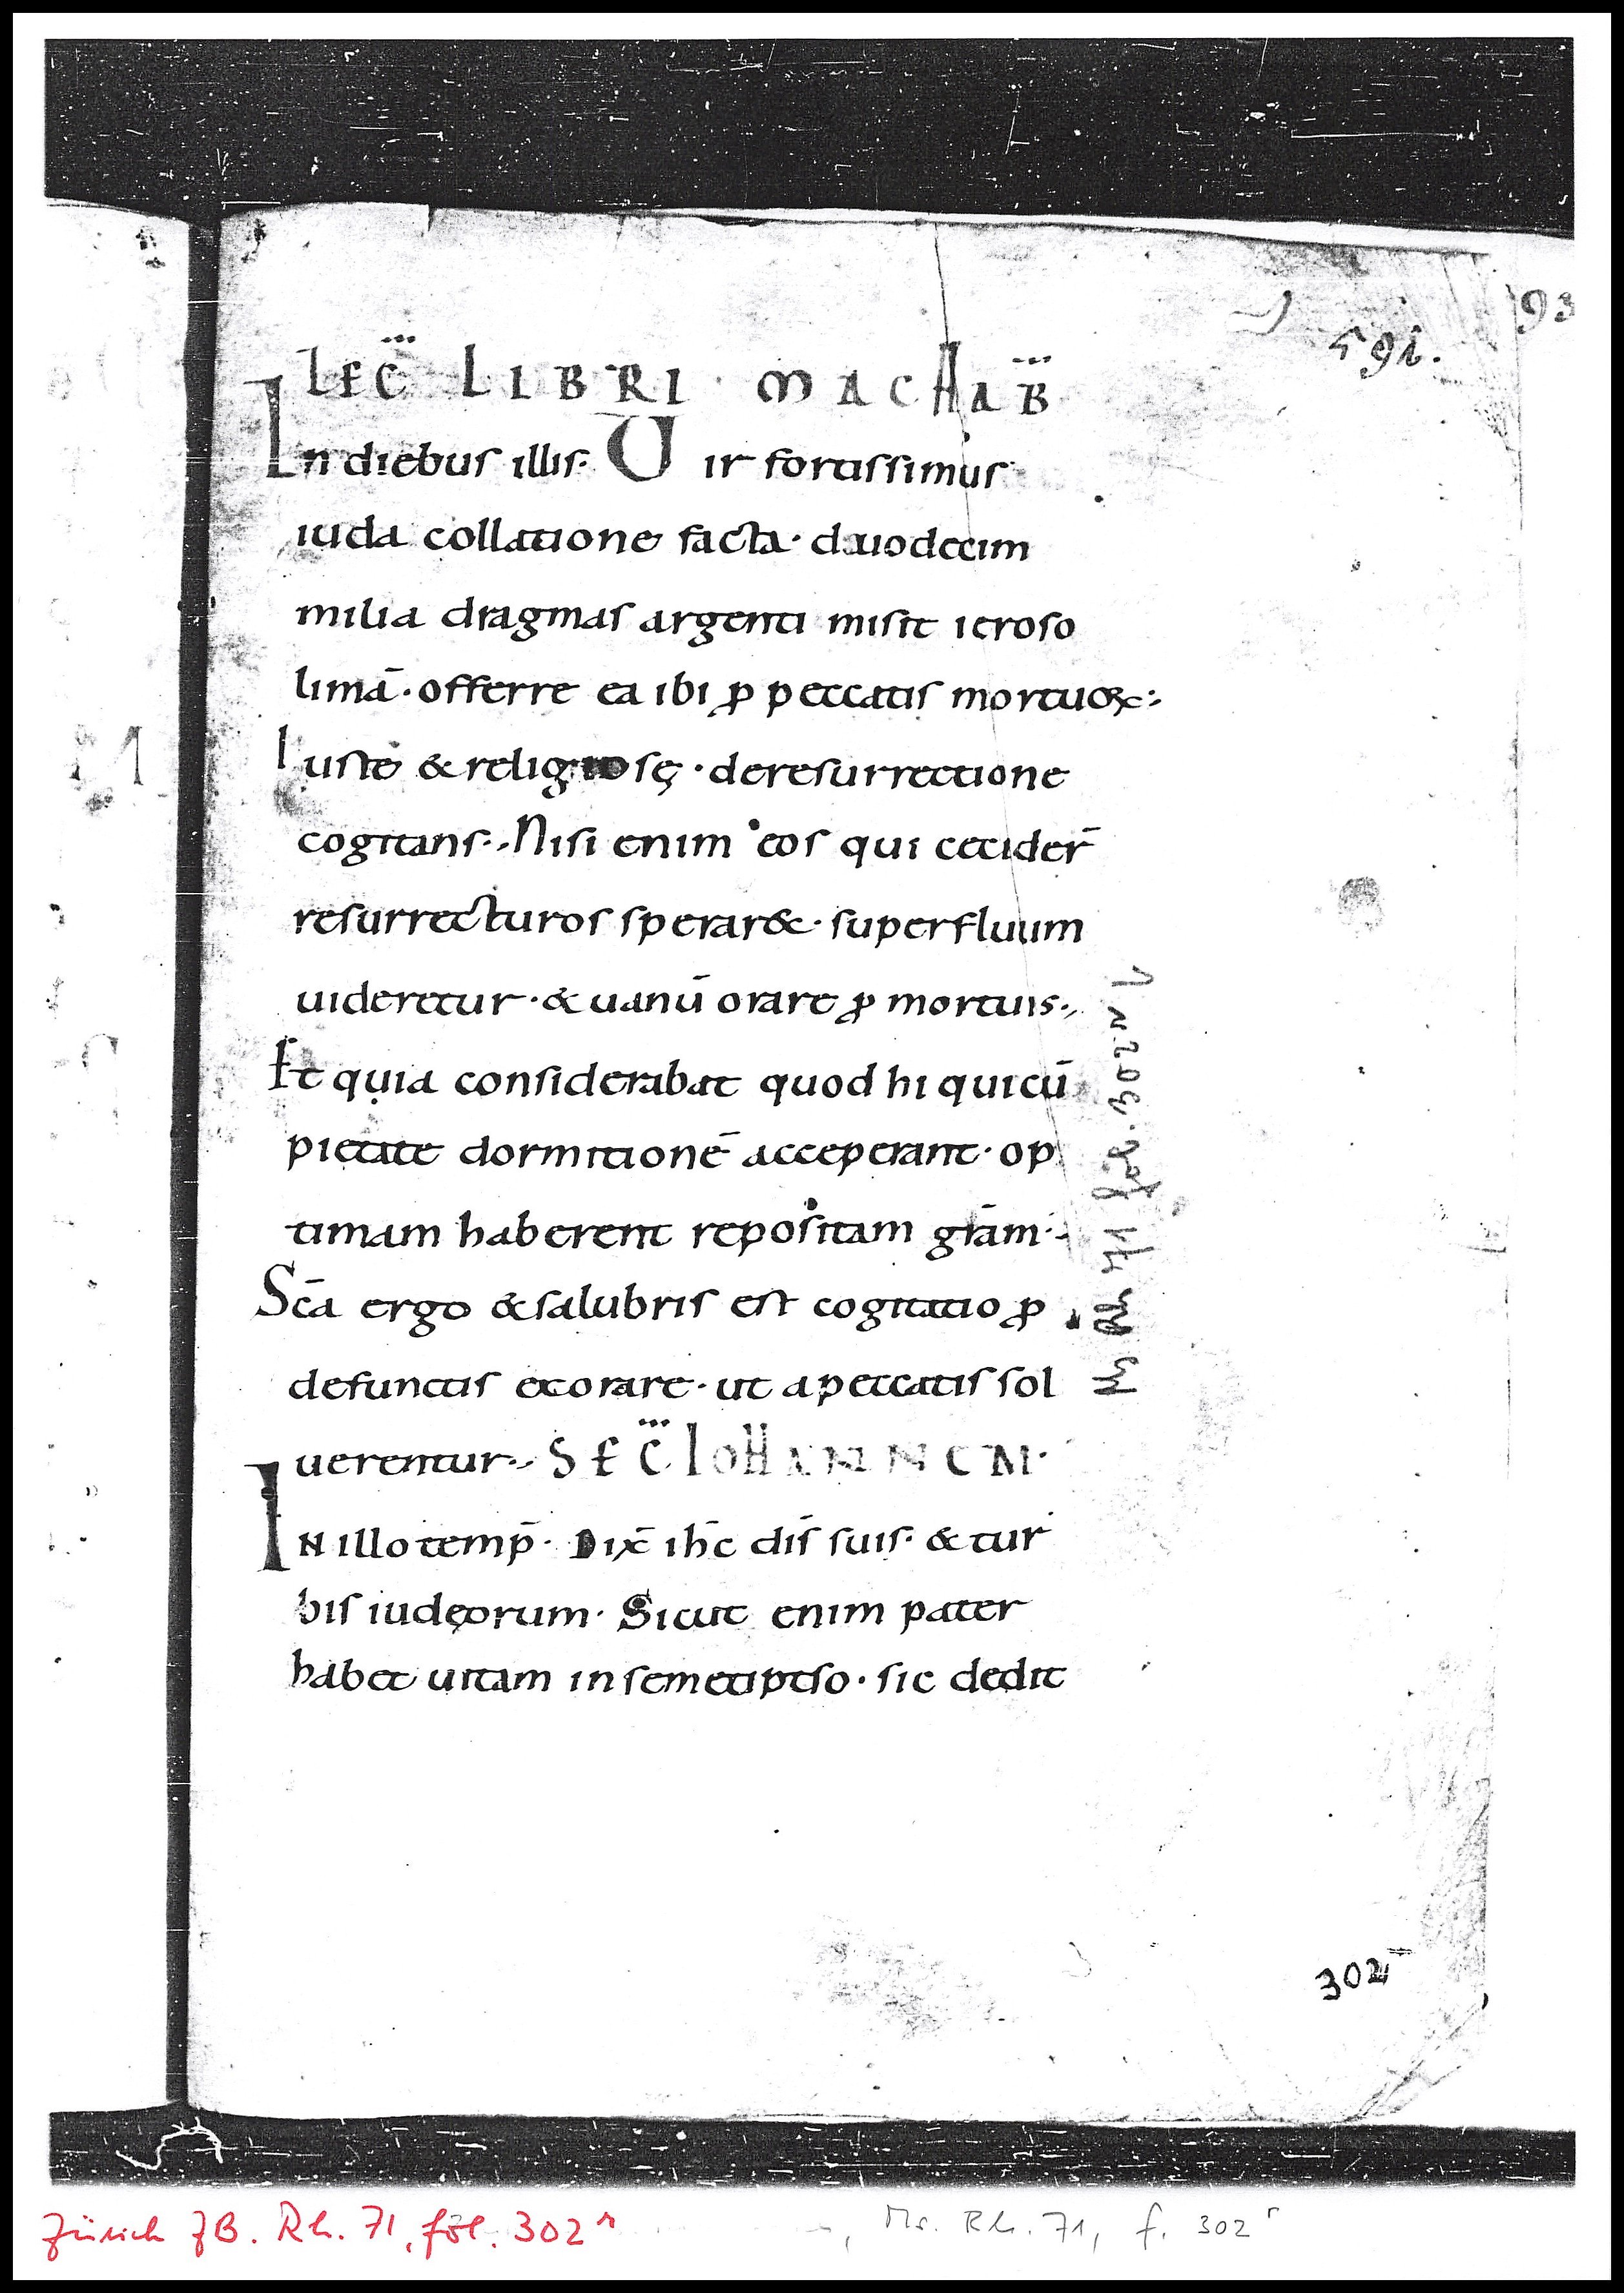 93
591.
LEC̄ LIBRI MACHAB̄
In diebus illis· Uir fortissimus
iuda collatione facta· duodecim
milia dragmas argenti misit ieroso
limā· offerre ea ibi ꝓ peccatis mortuoꝝ:
Iuste & religiosę· deresurrectione
cogitans· Nisi enim eos qui cecider̄
resurrecturos sperar&· superfluum
uideretur· & uanū orare ꝓ mortuis·
Et quia considerabat quod hi qui cū
pietate dormitionē acceperant· op
timam haberent repositam grām·
Sc̄a ergo & salubris est cogitatio ꝓ
defunctis exorare· ut a peccatis sol
uerentur· SEC̄ IOHANNEM·
IN illo temp̄· Dix̄ ih̄c dīs suis· & tur
bis iudęorum· Sicut enim pater
habet uitam in semetipso· sic dedit
Ms Rh 71 fol. 302 r
302r
Zürich ZB. Rh. 71, fol. 302r
, Ms. Rh. 71, f. 302r